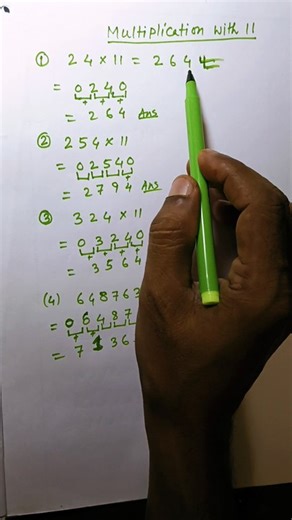 Multiplication with 11
① 24 × 11 = 264
= 0240
= 264 Ans
② 254 × 11
= 02540
= 2794 Ans
③ 324 × 11
= 03240
= 3564
(4) 648763
= 06487
= 7136